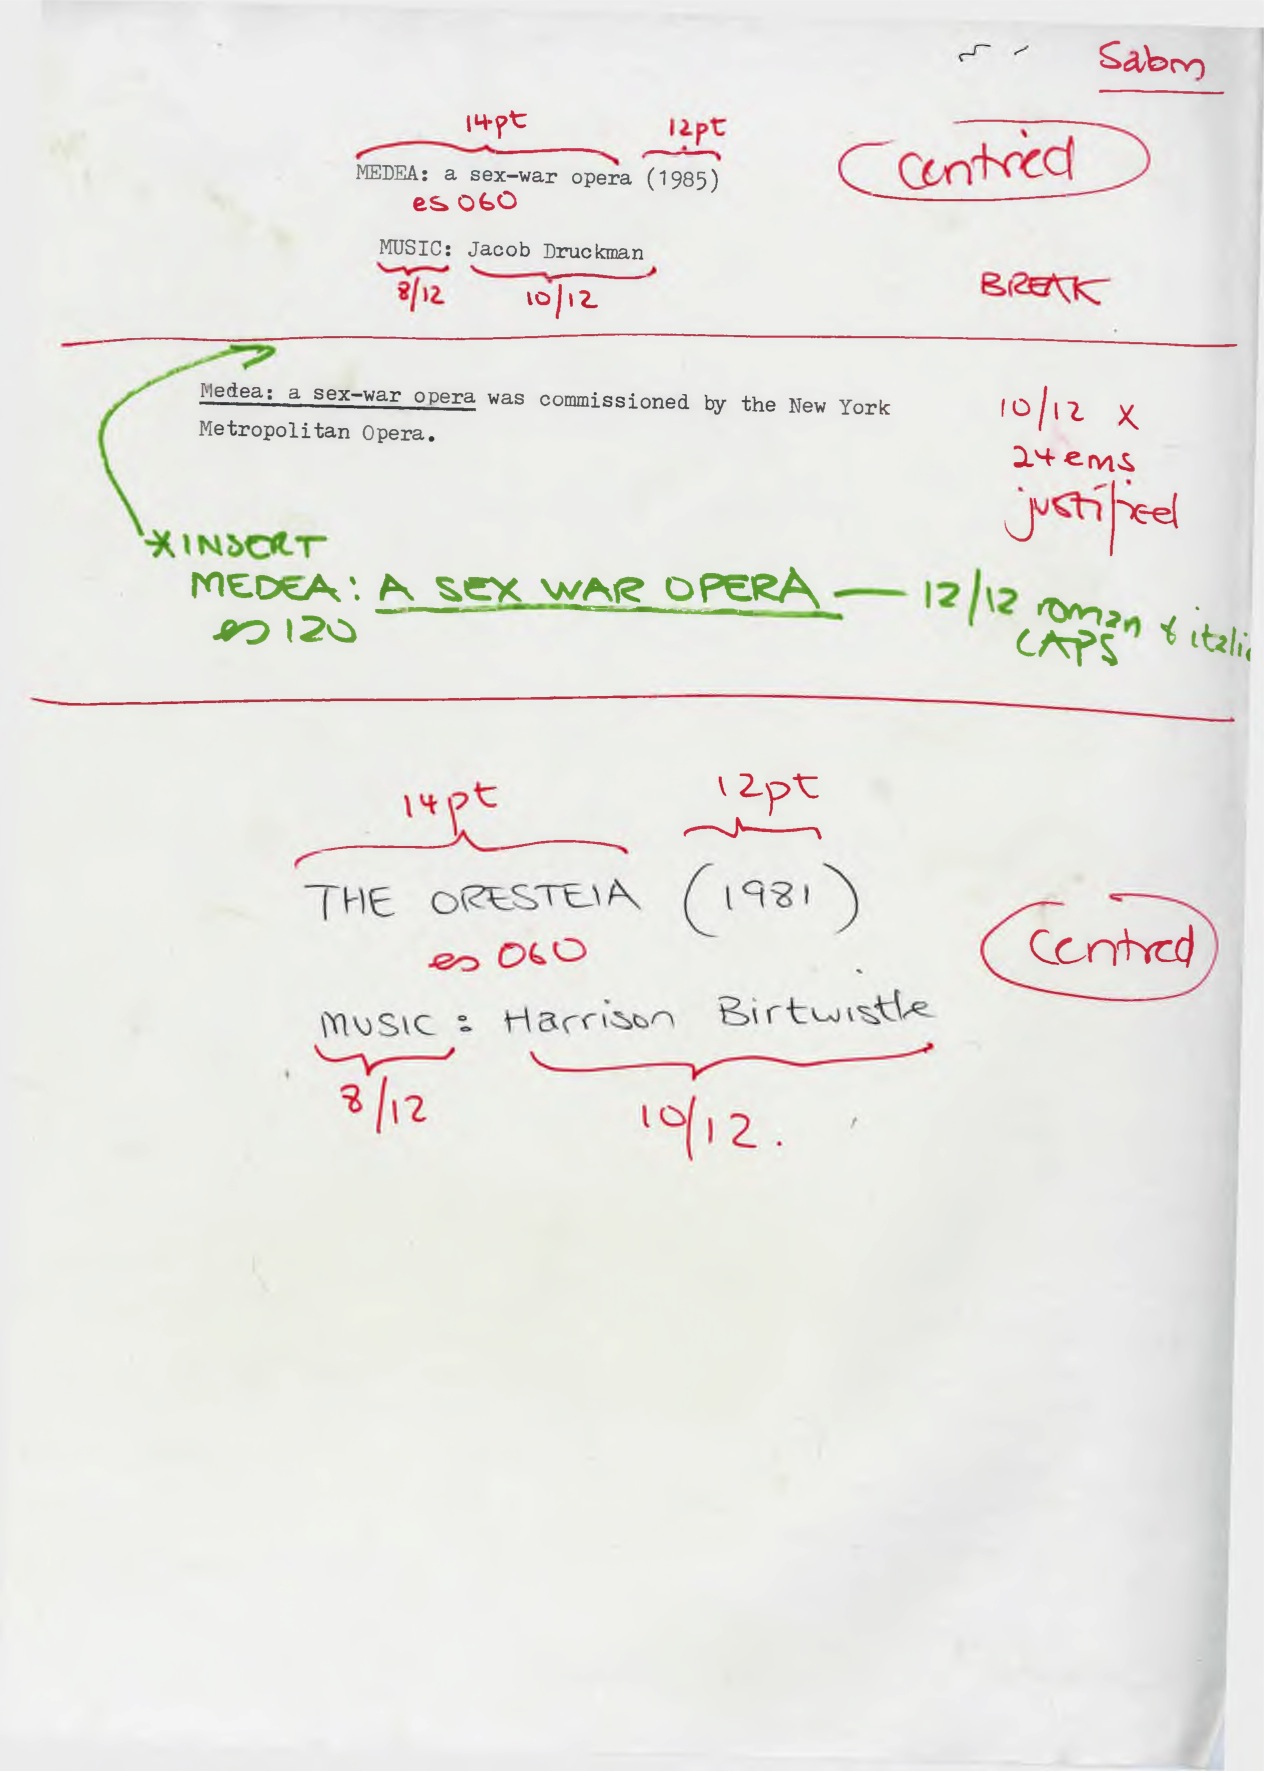 Sabm
14pt 12pt
MEDEA: a sex-war opera (1985)
centred
es 060
MUSIC: Jacob Druckman
8/12 10/12
BREAK
Medea: a sex-war opera was commissioned by the New York
Metropolitan Opera.
10/12 x
24 ems
justified
*INSERT
MEDEA: A SEX WAR OPERA — 12/12 roman & italic
CAPS
es 120
14pt 12pt
THE ORESTEIA (1981)
es 060
Centred
MUSIC: Harrison Birtwistle
8/12 10/12.